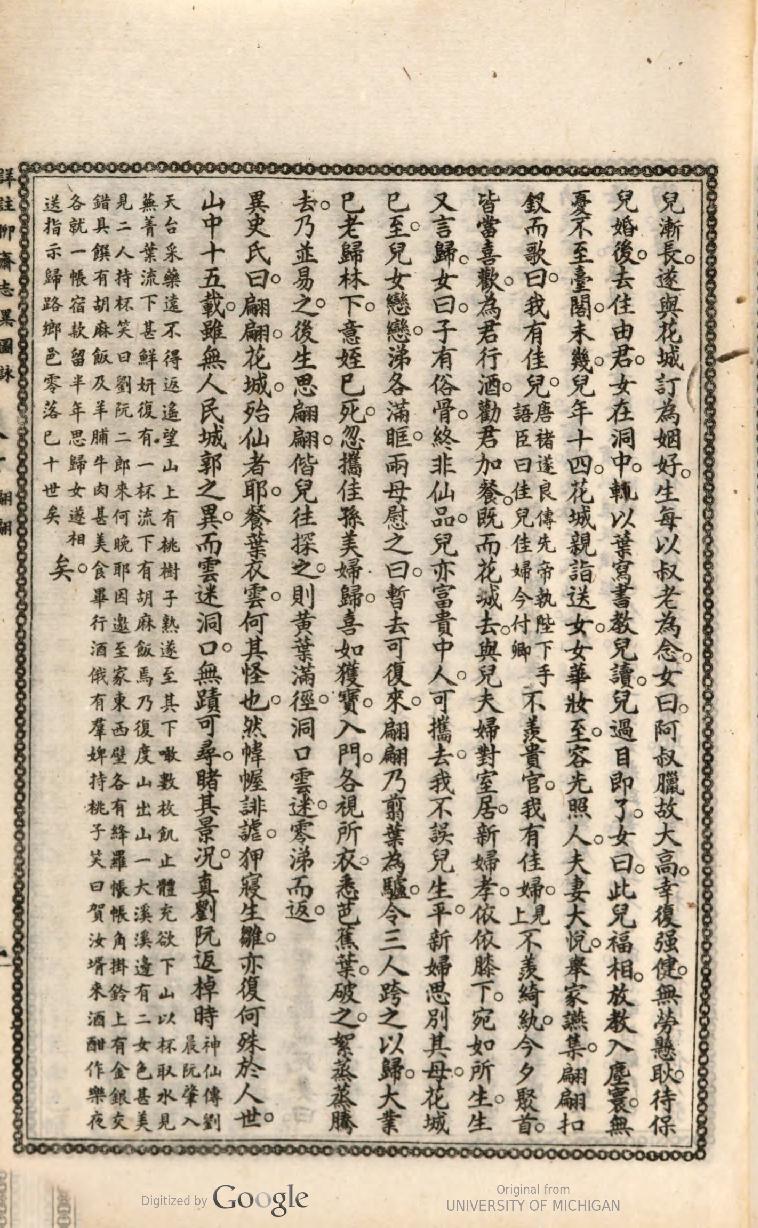 兒漸長。遂與花城訂為姻好。生每以叔老為念。女曰。阿叔臘故大高。幸復强健。無勞懸耿。待保
兒婚後。去住由君。女在洞中。輒以葉寫書教兒讀。兒過目即了。女曰。此兒福相。放教入塵寰。無
憂不至臺閣。未幾。兒年十四。花城親詣送女。女華妝至。容光照人。夫妻大悅。舉家讌集。翩翩扣
釵而歌曰。我有佳兒。唐褚遂良傳先帝執陛下手語臣曰佳兒佳婦今付卿不羨貴官。我有佳婦。見上不羨綺紈。今夕聚首。
皆當喜歡。為君行酒。勸君加餐。既而花城去。與兒夫婦對室居。新婦孝。依依膝下。宛如所生。生
又言歸。女曰。子有俗骨。終非仙品。兒亦富貴中人。可攜去。我不誤兒生平。新婦思別其母。花城
已至。兒女戀戀。涕各滿眶。兩母慰之曰。暫去可復來。翩翩乃翦葉為驢。令三人跨之以歸。大業
已老歸林下。意姪已死。忽攜佳孫美婦歸。喜如獲寶。入門。各視所衣。悉芭蕉葉。破之。絮蒸蒸騰
去。乃並易之。後生思翩翩。偕兒往探之。則黃葉滿徑。洞口雲迷。零涕而返。
異史氏曰。翩翩花城。殆仙者耶。餐葉衣雲。何其怪也。然幃幄誹謔。狎寢生雛。亦復何殊於人世。
山中十五載。雖無人民城郭之異。而雲迷洞口。無蹟可尋。睹其景況。真劉阮返棹時神仙傳劉晨阮肇入
天台采藥遠不得返遙望山上有桃樹子熟遂至其下噉數枚飢止體充欲下山以杯取水見
蕪菁葉流下甚鮮姸復有一杯流下有胡麻飯焉乃復度山出山一大溪溪邊有二女色甚美
見二人持杯笑曰劉阮二郎來何晚耶因邀至家東西壁各有絳羅帳帳角掛鈴上有金銀交
錯具饌有胡麻飯及羊脯牛肉甚美食畢行酒俄有羣婢持桃子笑曰賀汝壻來酒酣作樂夜
各就一帳宿款留半年思歸女遂相
送指示歸路鄉邑零落已十世矣矣。
詳註聊齋志異圖詠
翩翩
Digitized by Google
Original from
UNIVERSITY OF MICHIGAN